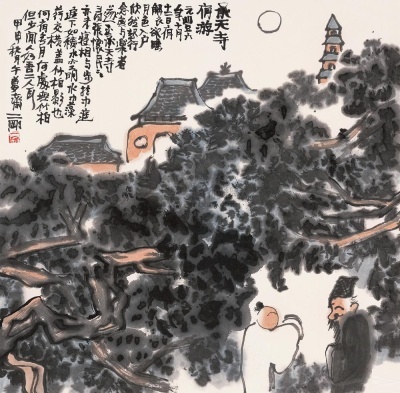 承天寺
夜游
元丰六
年十月
十二日夜
解衣欲睡
月色入户
欣然起行
念无与乐者
遂至承天寺
寻张怀民民
亦未寝相与步于中庭
庭下如积水空明水中藻
荇交横盖竹柏影也
何夜无月何处无竹柏
但少闲人如吾二人耳
甲申秋月